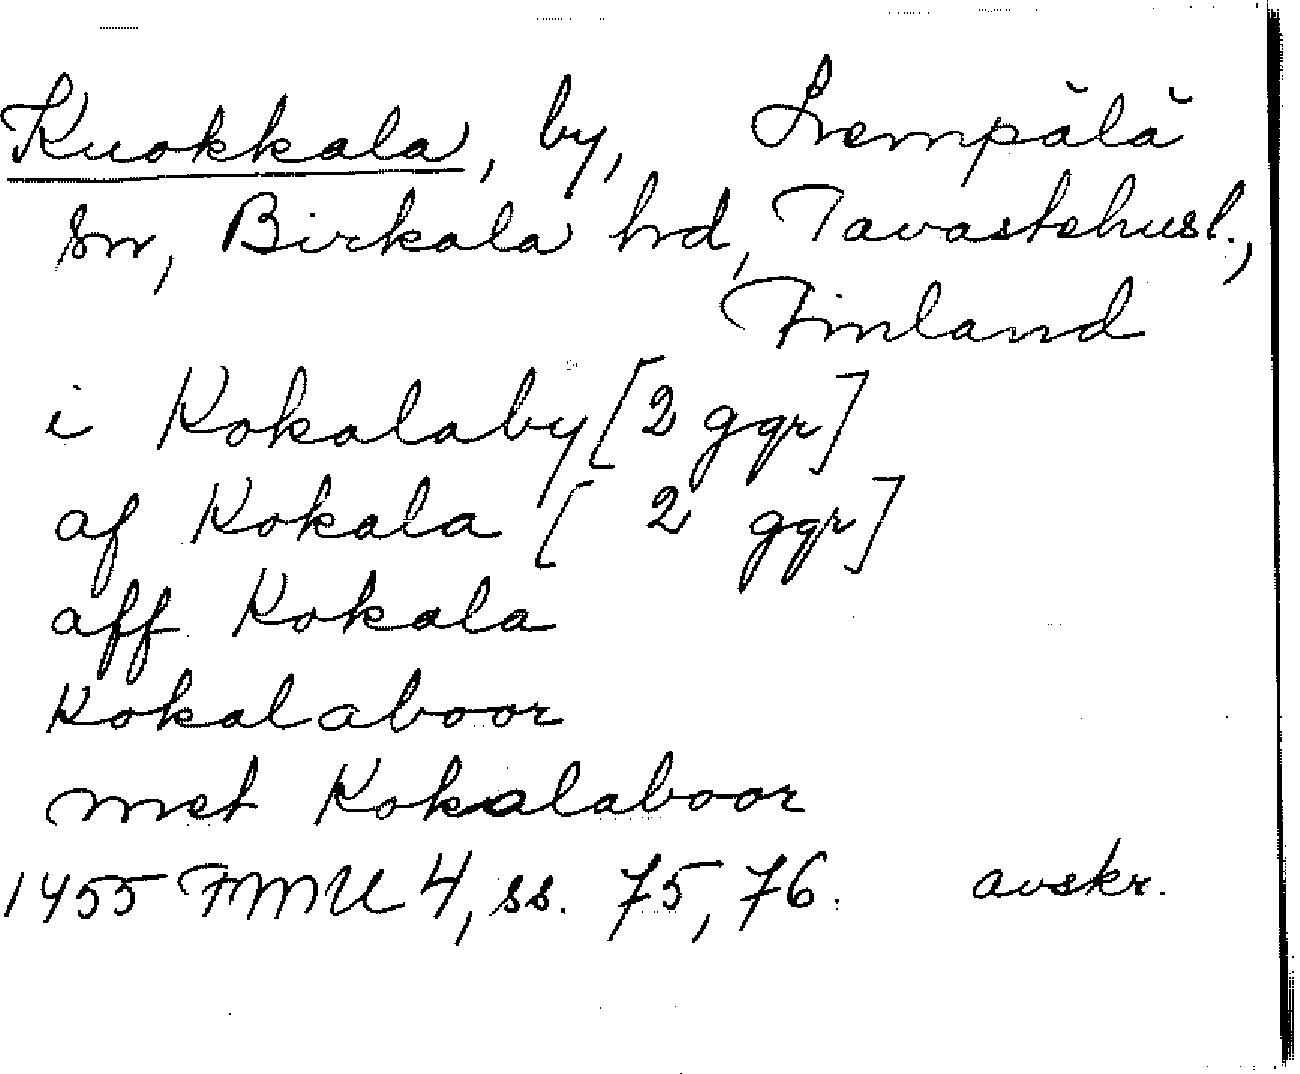 Kuokkala, by, Lempälä
sn, Birkala hd, Tavastehusl.,
Finland
i Kokalaby [2 ggr]
af Kokala [2 ggr]
aff Kokala
Kokalaboor
met Kokalaboor
1455 FMU 4, ss. 75, 76. avskr.